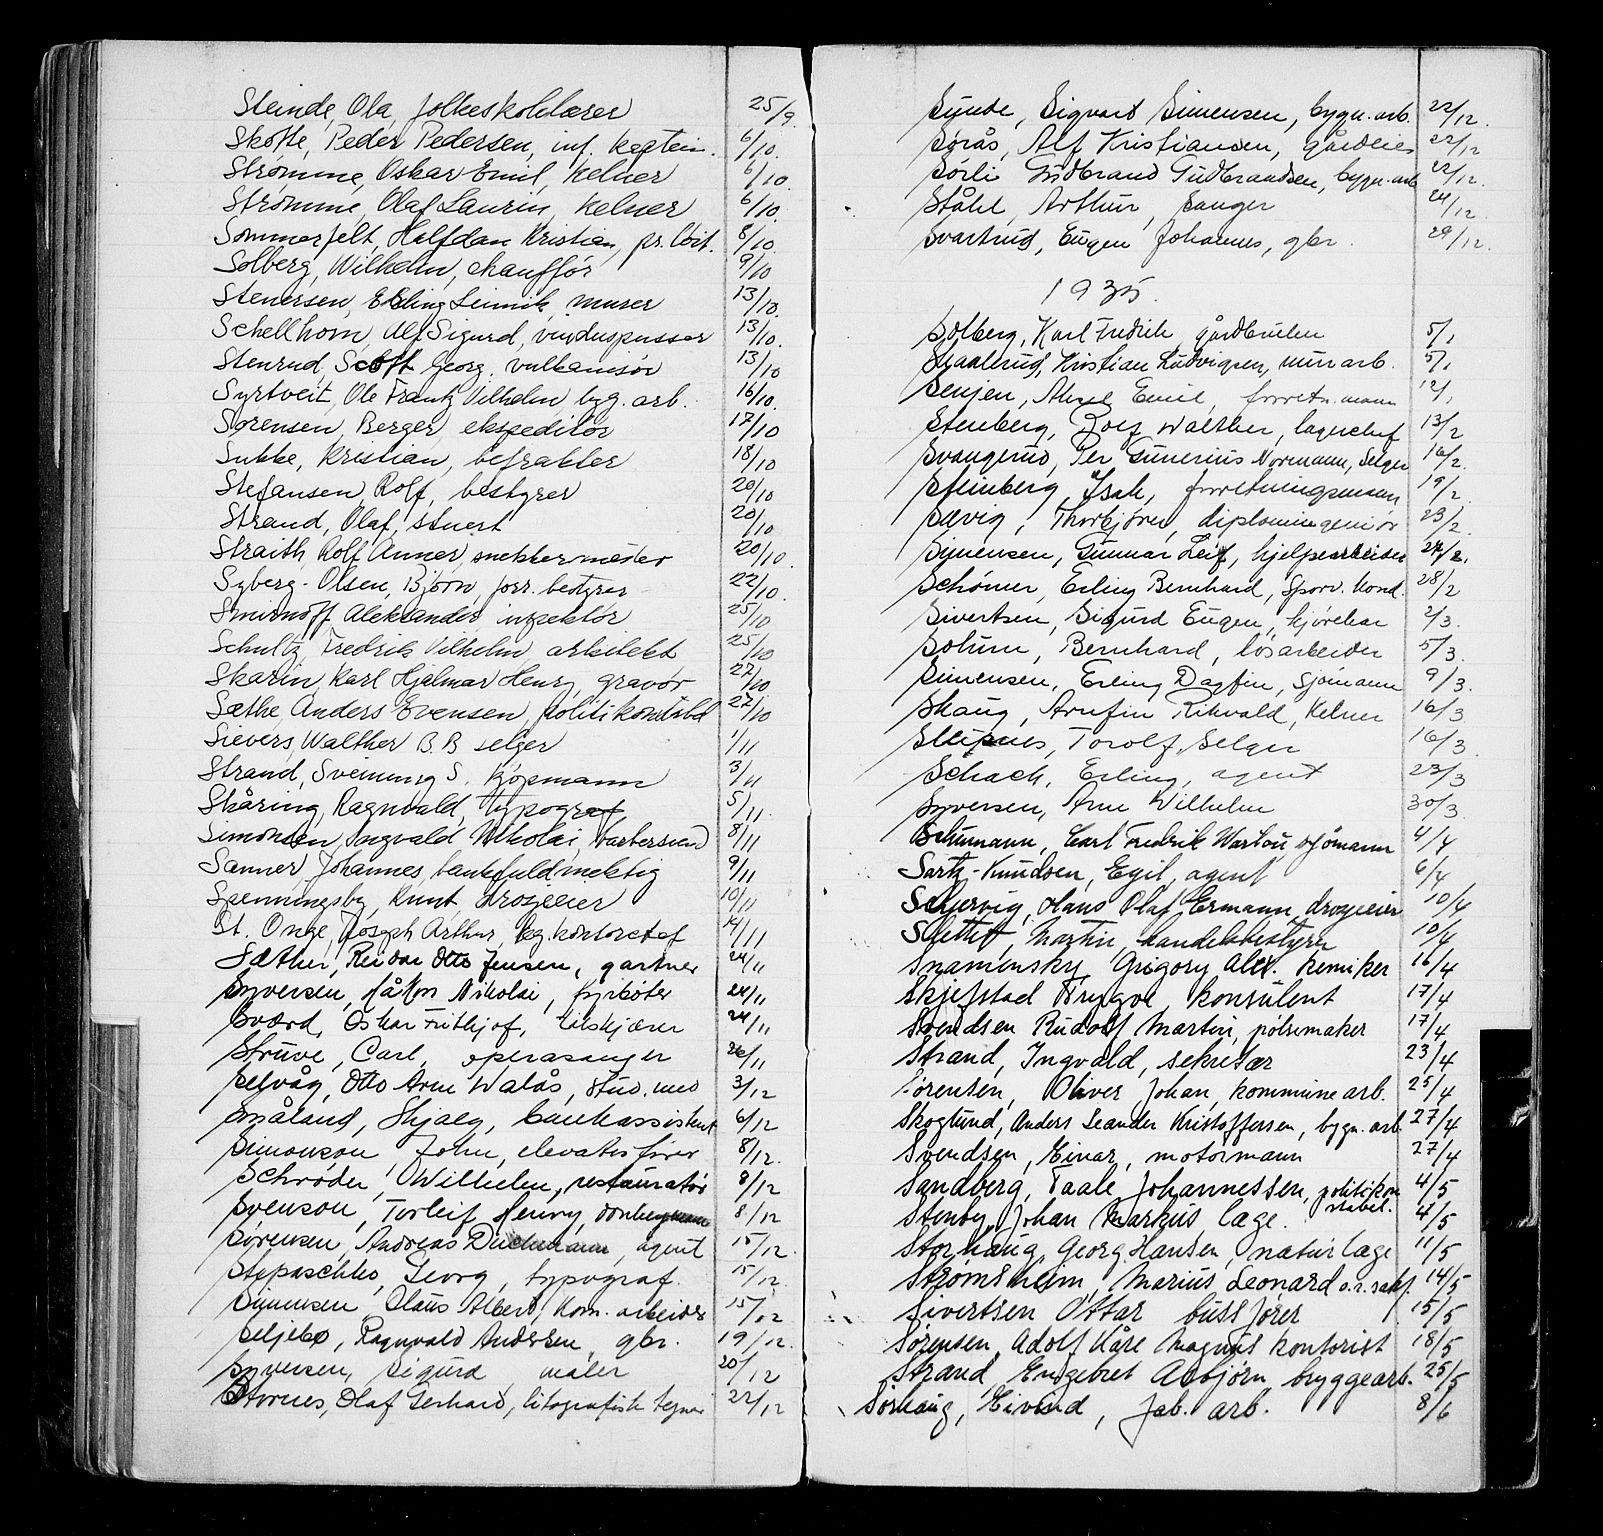 Steinde, Ola, folkeskolelærer 25/9.
Skofte, Peder Pedersen, inf. kaptein. 6/10.
Strømme, Oskar Emil, kelner 6/10.
Strømme, Olaf Laurin, kelner 6/10.
Sommerfelt, Halfdan Kristian, pr. løit. 8/10.
Solberg, Wilhelm, chauffør 9/10
Stenersen, Erling murer 13/10.
Schellhorn, Alf Sigurd, vinduspusser 13/10.
Stenrud, Scott Georg, vulkanisør 13/10
Syrtveit, Ole Frantz Vilhelm byg. arb. 16/10.
Sørensen, Berger, ekspeditør 17/10
Sukke, Kristian, befrakter 18/10
Stefansen, Rolf, bestyrer 20/10
Strand, Olaf, stuert 20/10
Straith, Rolf Annar, snekkermester 20/10.
Syberg-Olsen, Bjørn, forr. bestyrer 22/10.
Smirnoff, Aleksander inspektør 25/10
Schultz, Fredrik Vilhelm arkitekt 25/10
Skarin, Karl Hjalmar Henry, gravør 27/10
Sæthe, Anders Evensen, politikonstabel 27/10
Sievers, Walther B.B. selger 1/11
Strand, Sveinung S. kjøpmann 3/11
Skåring, Ragnvald, typograf 5/11.
Simonsen, Ingvald Nikolai, barbersvend 8/11
Sanner, Johannes, bankfuldmektig 9/11
Spenningsby, Knut, drosjeeier 10/11
St. Onge, Joseph Arthur, kontorchef 14/11
Sæther, Reidar Otto Jensen, gartner 24/11
Syversen, Håkon Nikolai, fyrbøter 24/11
Sværd, Oskar Frithjof, tilskjærer 24/11
Struve, Carl, operasanger 26/11
Selvåg, Otto Arne Walås, stud. med 3/12
Småland, Hjalg, bankassistent 6/12
Simonson John, elevatorfører 8/12.
Schrøder, Wilhelm, restauratør 8/12
Svenson, Torleif Henry, 8/12
Sørensen, Andreas Duckmann, agent 15/12.
Stepaschko, Georg, typograf. 15/12.
Simensen Claus Albert, Kom. arbeider 15/12
Seljebo, Ragnvald Andersen, gbr. 19/12.
Syversen, Sigurd, maler 20/12
Stornes, Olaf Gerhard, litografisk tegner 22/12
Sunde, Sigvard Simensen, bygn. arb. 22/12.
Sørås, Alf Kristiansen, gårdeier 22/12
Sørli Gudbrand Gudbrandsen, bygn. arb 22/12.
Ståhl, Arthur, sanger 24/12.
Svartrud, Eugen Johannes, gbr. 29/12.
1935.
Solberg, Karl Fredrik, gårdbruker 5/1
Skaalerud, Kristian Ludvigsen, murarb. 5/1
Senjen, Aksel Emil, forretn. mann 12/1
Stenberg, Walther, lagerchef 13/2
Svangerud, Per Gunerius Normann, Selger 16/2.
Steinberg, Isak, forretningsmann 19/2
Sævig, Thorbjørn, diplomingeniør 23/2
Simensen, Gunnar Leif, hjelpearbeider 24/2.
Schømer, Erling Bernhard, Sporv. kond. 28/2
Sivertsen, Sigurd Eugen, kjørekar 2/3.
Solum, Bernhard, løsarbeider 5/3
Simensen, Erling Dagfin, Sjømann 9/3.
Skaug, Arnfin Rikvald, Kelner 16/3
Sleipnes, Torolf, Selger 16/3
Schach, Erling, agent 23/3
Syversen, Arne Wilhelm 30/3
Schumann, Carl Fredrik Warton, sjømann 4/4
Sartz-Knudsen, Egil, agent 6/4
Schjervig, Hans Olaf Ermann, drosjeeier 10/4
Slettet, Martin, handelsbestyrer 10/4
Snamensky, Grigory Alex. kemiker 16/4
Skjefstad Trygve, konsulent 17/4
Svendsen Rudolf Martin, pølsemaker 17/4
Strand, Ingvald, sekretær 23/4
Sørensen, Oliver Johan, kommunearb. 25/4
Skoglund, Anders Leander Kristoffersen, bygn. arb. 27/4
Svendsen, Einar, motormann 27/4
Sandberg, Paale Johannessen, politikonstabel. 4/5
Stenby, Johan Markus læge. 4/5
Storhaug, Georg Hansen, naturlæge 11/5
Strømsheim, Marius Leonard o.r.sakf. 14/5
Sivertsen Ottar bussfører 15/5
Sørensen, Adolf Kåre Magnus kontorist 18/5
Strand, Engebret Asbjørn, bryggearb. 25/5
Sørhaug, Eivind, fab. arb. 8/6